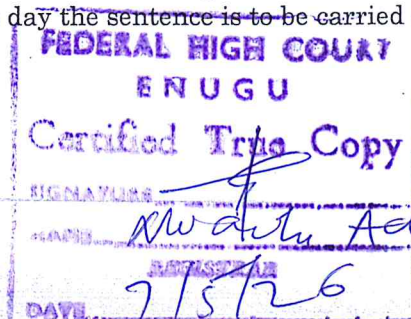 day the sentence is to be carried
FEDERAL HIGH COURT
ENUGU
Certified True Copy
SIGNATURE
NAME
REGISTRAR
DATE 7/5/26